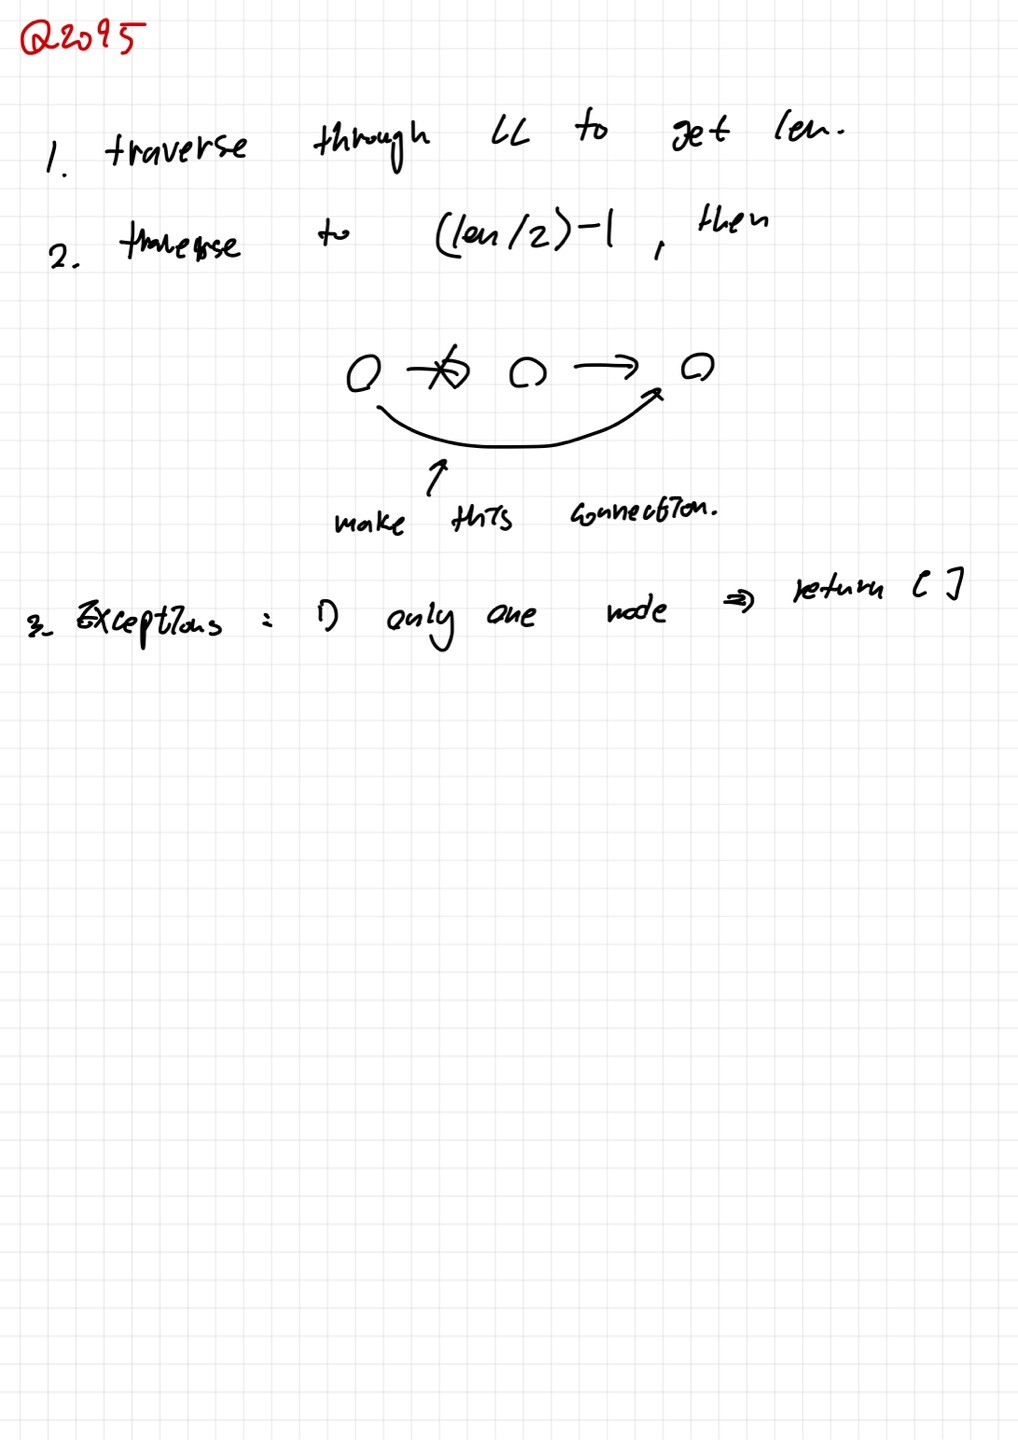 Q2095
1. traverse through LL to get len.
2. traverse to (len/2)-1, then
make this connection.
3. Exceptions : 1) only one node ⇒ return []